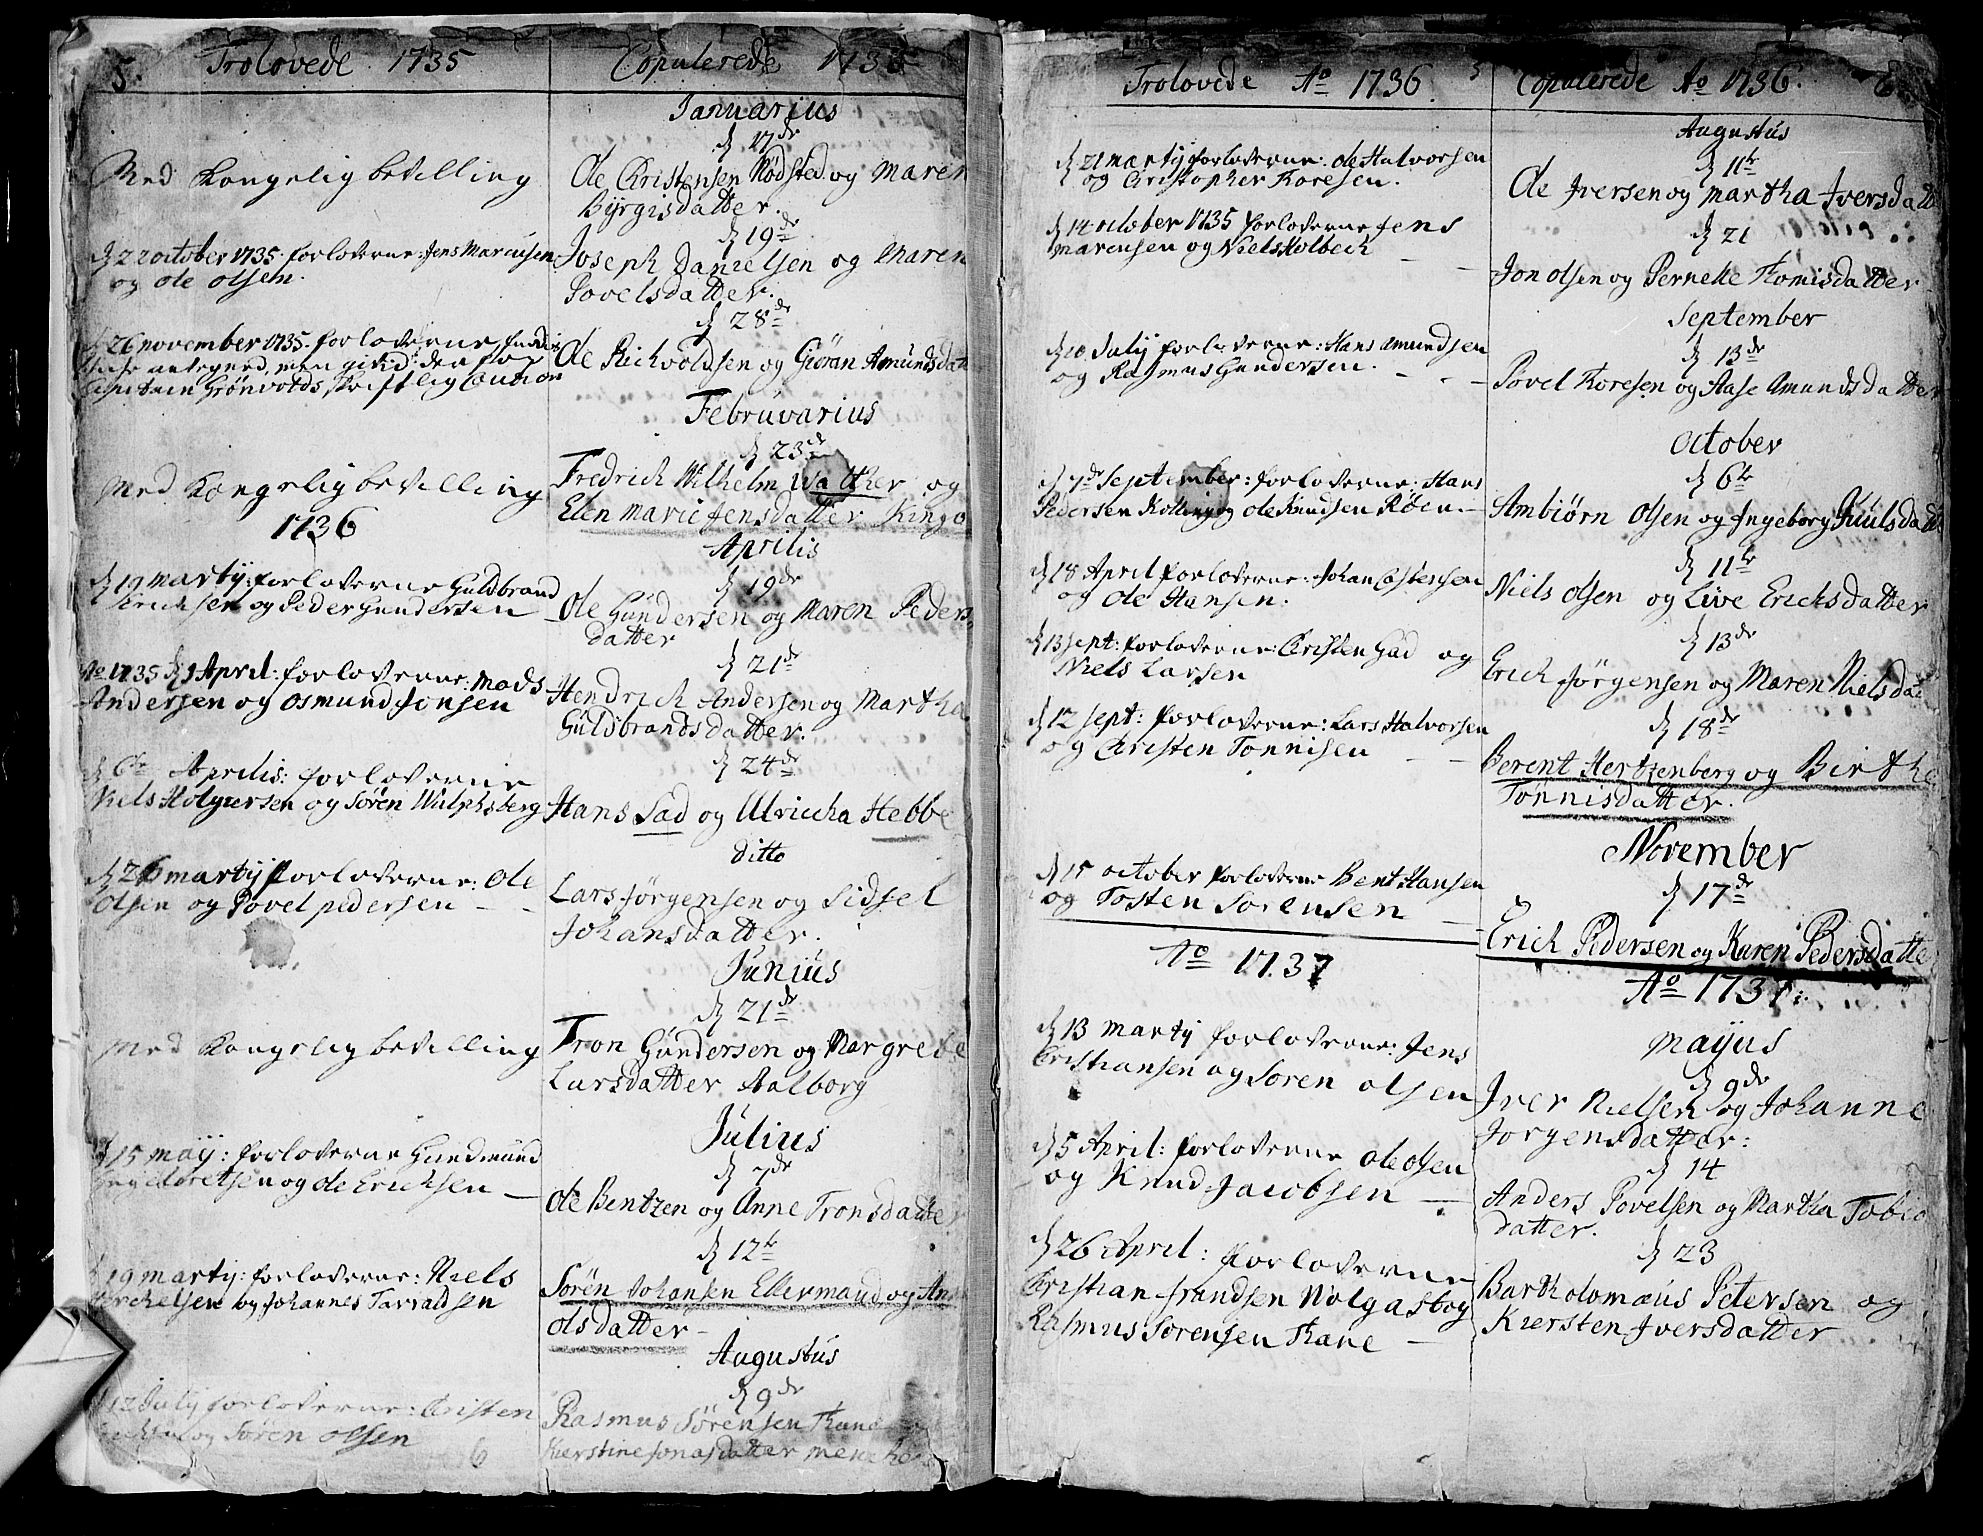 5.
Trolovede 1735
Med Kongelig bevilling
d 22 october 1735. forloverne: Jens Marcusen
og Ole Olsen.
d 26 november 1735. forloverne
antegned, men givid derfor
Capitain Grönvolds skriftlig Caution
Med Kongelig bevilling
1736
d 19 martij: forloverne Guldbrand
Erichsen og Peder Gundersen
Ao 1735 d 9 April: forloverne: Mads
Andersen og Osmund Jonsen
d 6te Aprilis: forloverne
Niels Holgiersen og Sören Wulphsberg
d 26 martij forloverne: Ole
Olsen og Povel pedersen - -
Med Kongelig bevilling
d 15 maij: forloverne Gundmund
Ingebretsen og Ole Ericksen -
d 19 martij: forloverne: Niels
Terchelsen og Johannes Tarraldsen
d 12 Julij forloverne: Christen
og Sören Olsen
6
Copulerede 1736
Januarius
d 17de
Ole Christensen Rödsted og Maren
Byrgisdatter.
d 19de
Joseph Danielsen og Maren
Povelsdatter.
d 28de
Ole Richvoldsen og Giöran Amundsdatt
Februvarius
d 23de
Fredrich Wilhelm Walther og
Elen Marie Jensdatter Kingo
Aprilis
d 19de
Ole Gundersen og Maren Peders
datter
d 21de
Hendrich Andersen og Martha
Guldsbrandsdatter.
d 24de
Hans Gad og Ulricha Hebbe
ditto
Lars Jörgensen og Sidsel
Johansdatter.
Junius
d 21de
Tron Gundersen og Margrete
Larsdatter Aalborg
Julius
d 7de
Ole Bentzen og Anne Tronsdatter
d 12te
Sörén Johansen Ellermand og Ane
Olsdatter -
Augustus
d 9de
Rasmus Sörensen Thane
Kierstine Jonasdatter
Trolovede Ao 1736.
5
d 21 martij forloverne: Ole Halvorsen
og Christopher Toresen.
d 14 october 1735 forloverne Jens
Marcusen og Niels Holbech - -
d 10 Julij forloverne: Hans Amundsen
og Rasmus Gundersen. - - -
d 7de September: forloverne: Hans
Pedersen Kolling og Ole Knudsen Röen -
d 18 April forloverne: Johan Castensen
og Ole Hansen.
d 13 sept: forloverne: Christen Gad og
Niels Larsen
d 12 sept: forloverne: Lars Halvorsen
og Christen Tonnisen - -
d 15 october forloverne Bent Hansen
og Tosten Sörensen -
Ao 1737
d 13 martij forloverne: Jens
Christiansen og Soren Olsen
d 5 April: forloverne Ole Olsen
og Knud Jacobsen -
d 26 April: forloverne
Christian Frandsen Wolgast og
Rasmus Sorensen Thane -
Copulerede Ao 1736.
6
Augustus
d 11te
Ole Iversen og Martha Iversdatt
d 21
Jon Olsen og Pernelle Tomisdatter
September
d 13de
Povel Toresen og Aase Amundsdatter
October
d 6te
Ambiörn Olsen og Ingeborg Juulsdatt
d 11te
Niels Olsen og Live Ericksdatter
d 13de
Erich Jörgensen og Maren Nielsdat
d 18de
Berent Hertzenberg og Birthe
Tönnisdatter.
November
d 17de
Erich Pedersen og Karen Pedersdatte
Ao 1737:
Maijus
d 9de
Iver Nielsen og Johanne
Jorgensdatter:
d 14
Anders Povelsen og Martha Tobia
datter.
d 23
Bartholomæus Petersen og
Kiersten Iversdatter